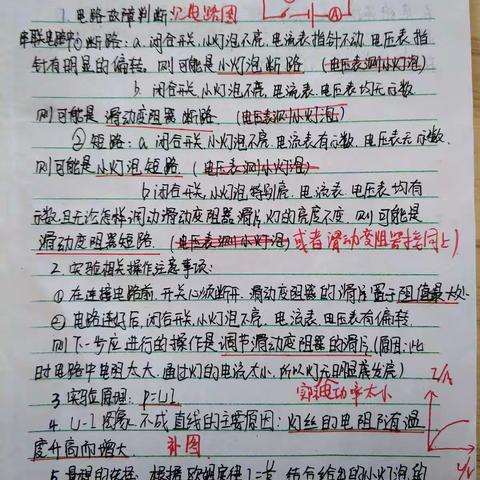 1. 电路故障判断 汇电路图
A
串联电路中 ① 断路：a. 闭合开关,小灯泡不亮,电流表指针不动,电压表指
针有明显的偏转,则可能是小灯泡断路 (电压表测小灯泡)
b. 闭合开关,小灯泡不亮,电流表、电压表均无示数
则可能是 滑动变阻器 断路. (电压表测小灯泡)
② 短路：a. 闭合开关,小灯泡不亮,电流表有示数,电压表无示数,
则可能是小灯泡短路. (电压表测小灯泡)
b.闭合开关,小灯泡特别亮,电流表、电压表均有
示数,且无论怎样调动滑动变阻器滑片,灯的亮度不变,则可能是
滑动变阻器短路. (电压表测小灯泡) 或者滑动变阻器接同上)
2. 实验相关操作注意事项：
① 在连接电路前,开关必须断开,滑动变阻器的滑片置于阻值最大处.
② 电路连好后,闭合开关,小灯泡不亮,电流表、电压表有偏转,
则下一步应进行的操作是调节滑动变阻器的滑片(原因:此
时电路中电阻太大,通过灯的电流太小,所以灯
3. 实验原理：P=UI. 实际电功率太小
I/A
4. U-I 图象不成直线的主要原因：灯丝的电阻随温
度升高而增大. 补图
U/V
5. 根据欧姆定律I=U/R, 结合给出的小灯泡的